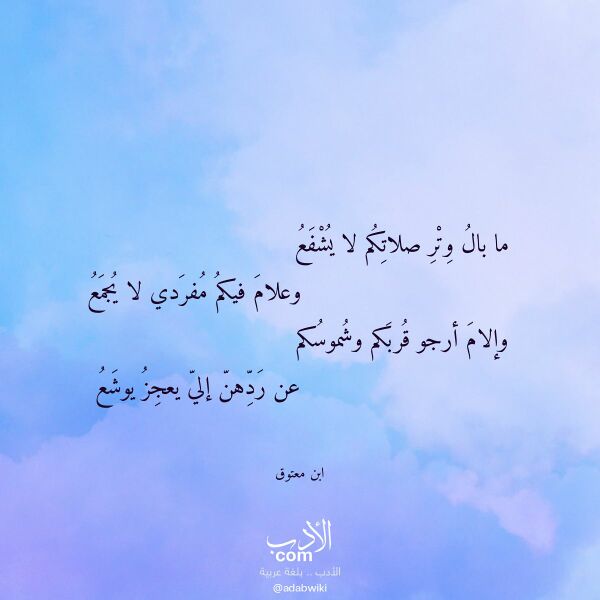 ما بالُ وِتْرِ صلاتِكُم لا يُشْفَعُ
وعلامَ فيكمُ مُفرَدي لا يُجمَعُ
وإلامَ أرجو قُربَكم وشُموسُكم
عن رَدِّهنّ إليّ يعجِزُ يوشَعُ
ابن معتوق
الأدب
com
الأدب .. بلغة عربية
@adabwiki